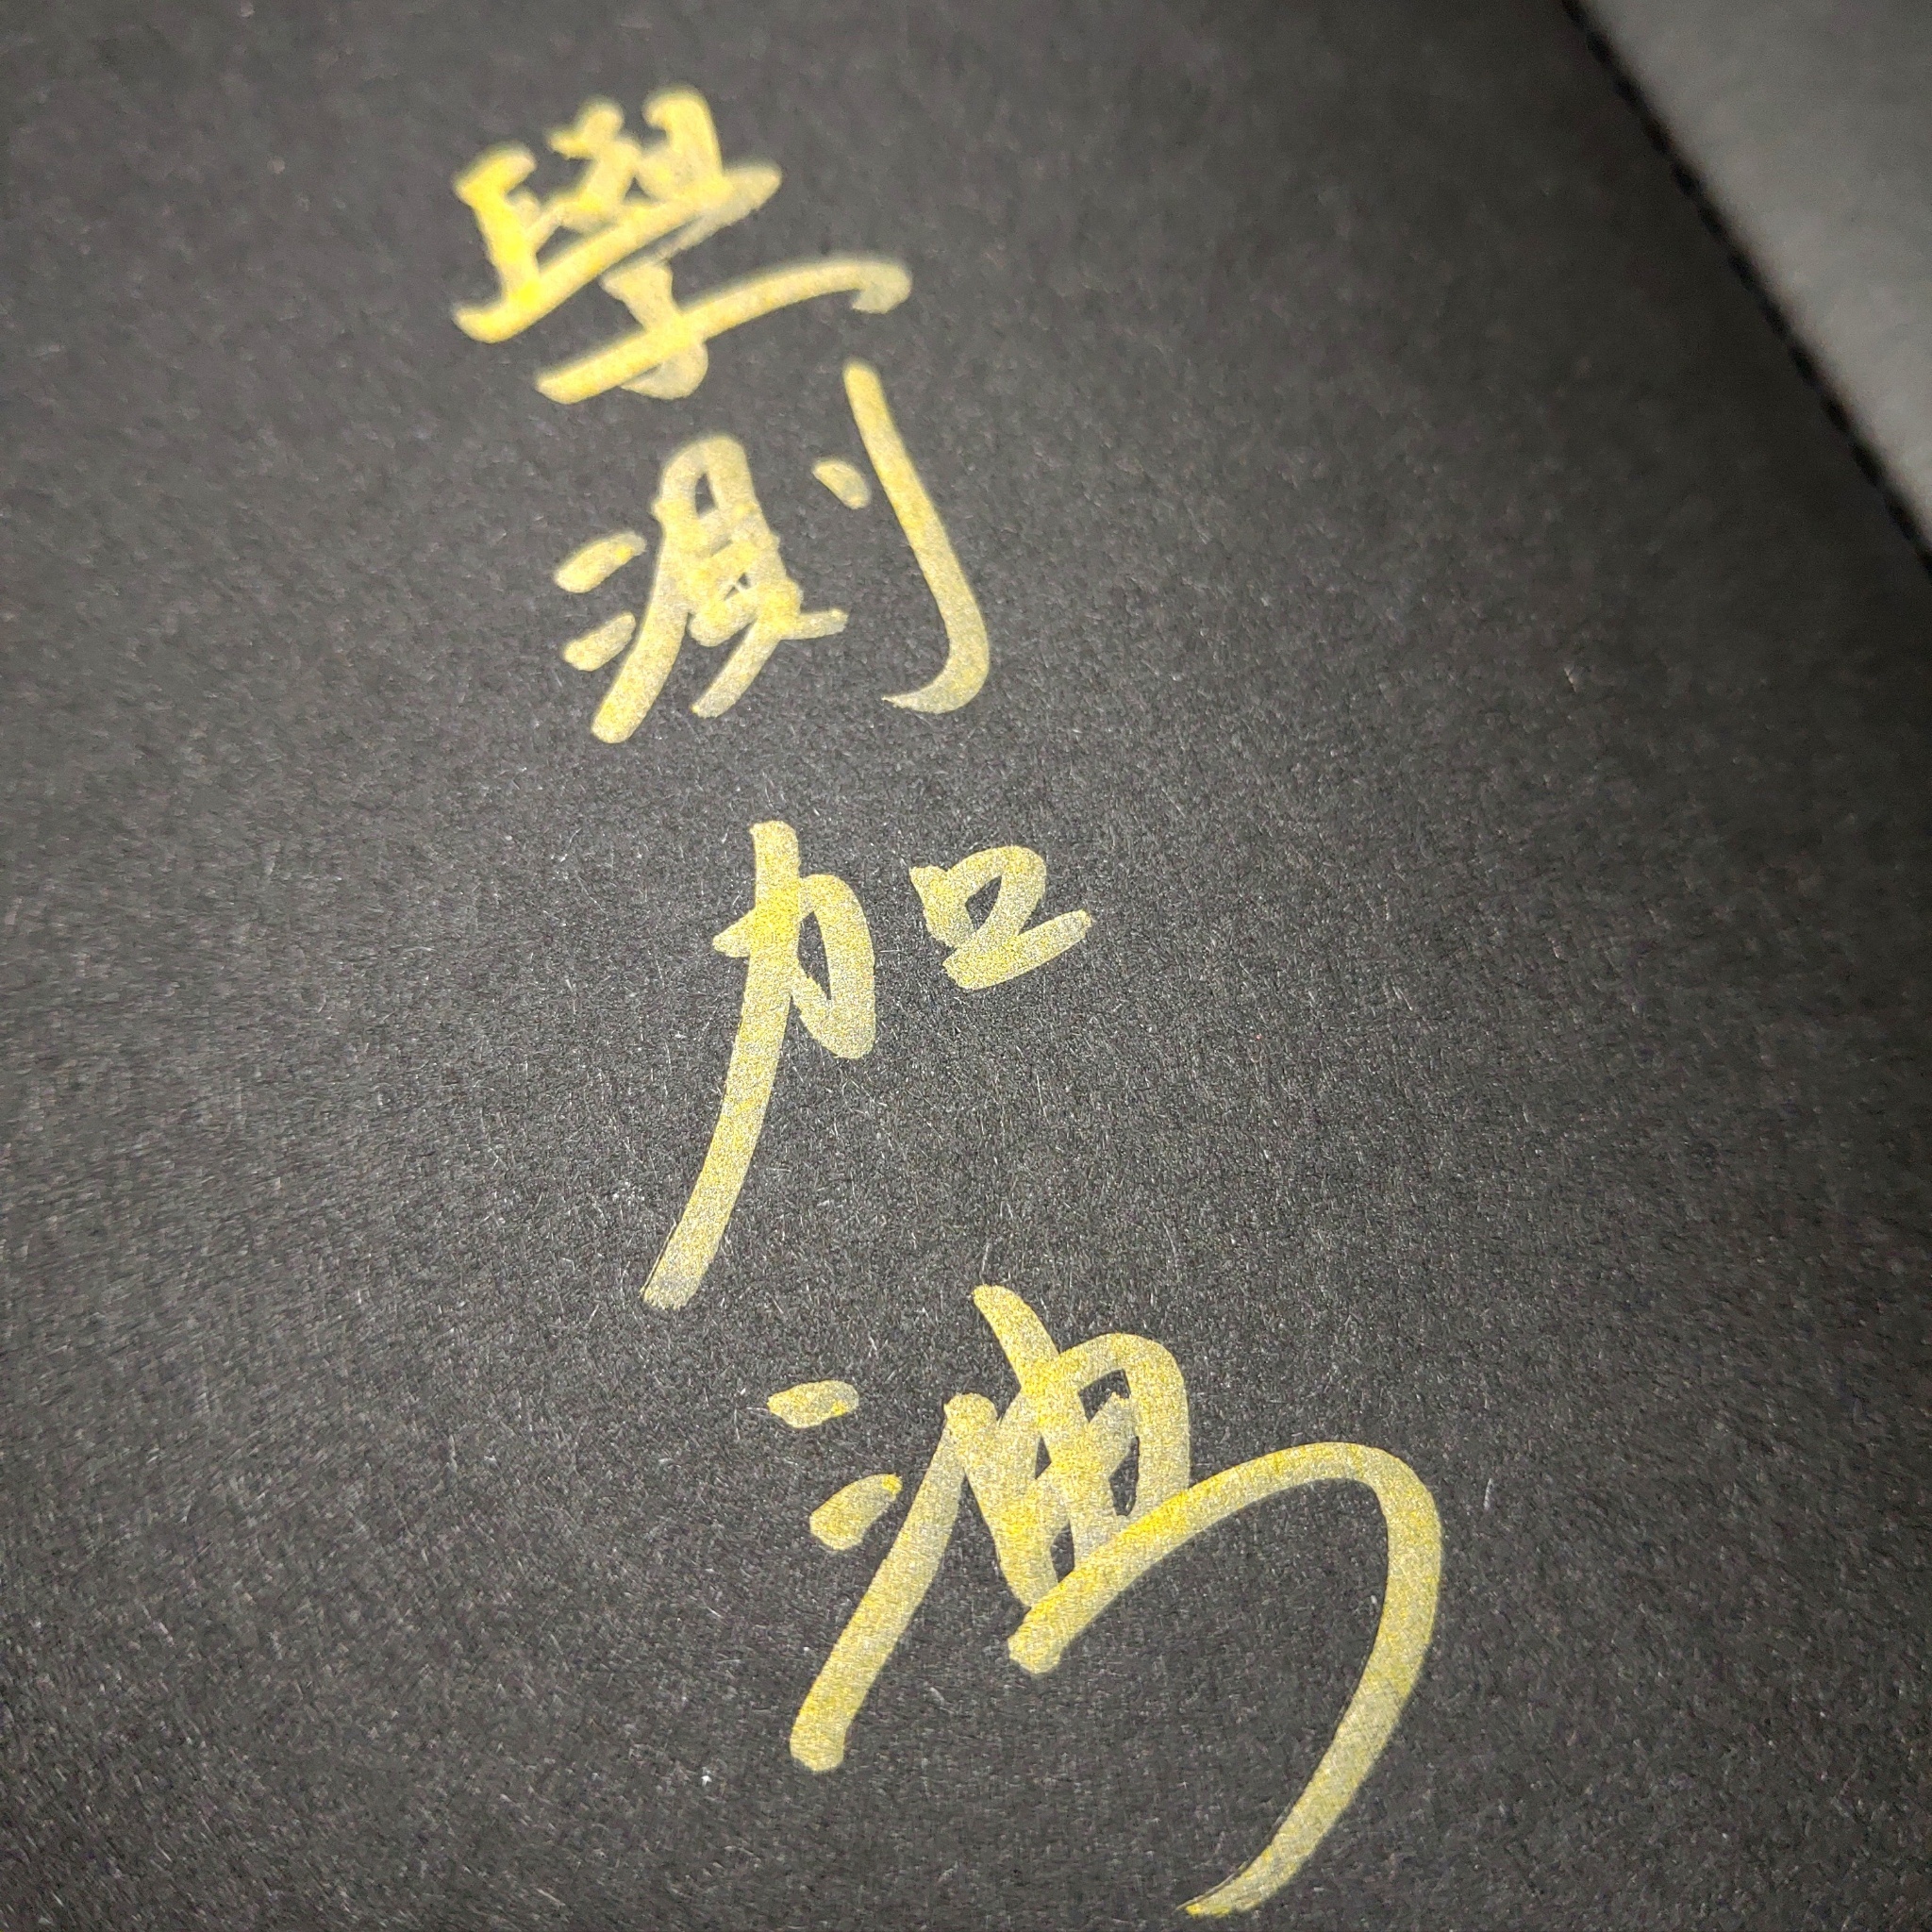 學測加油